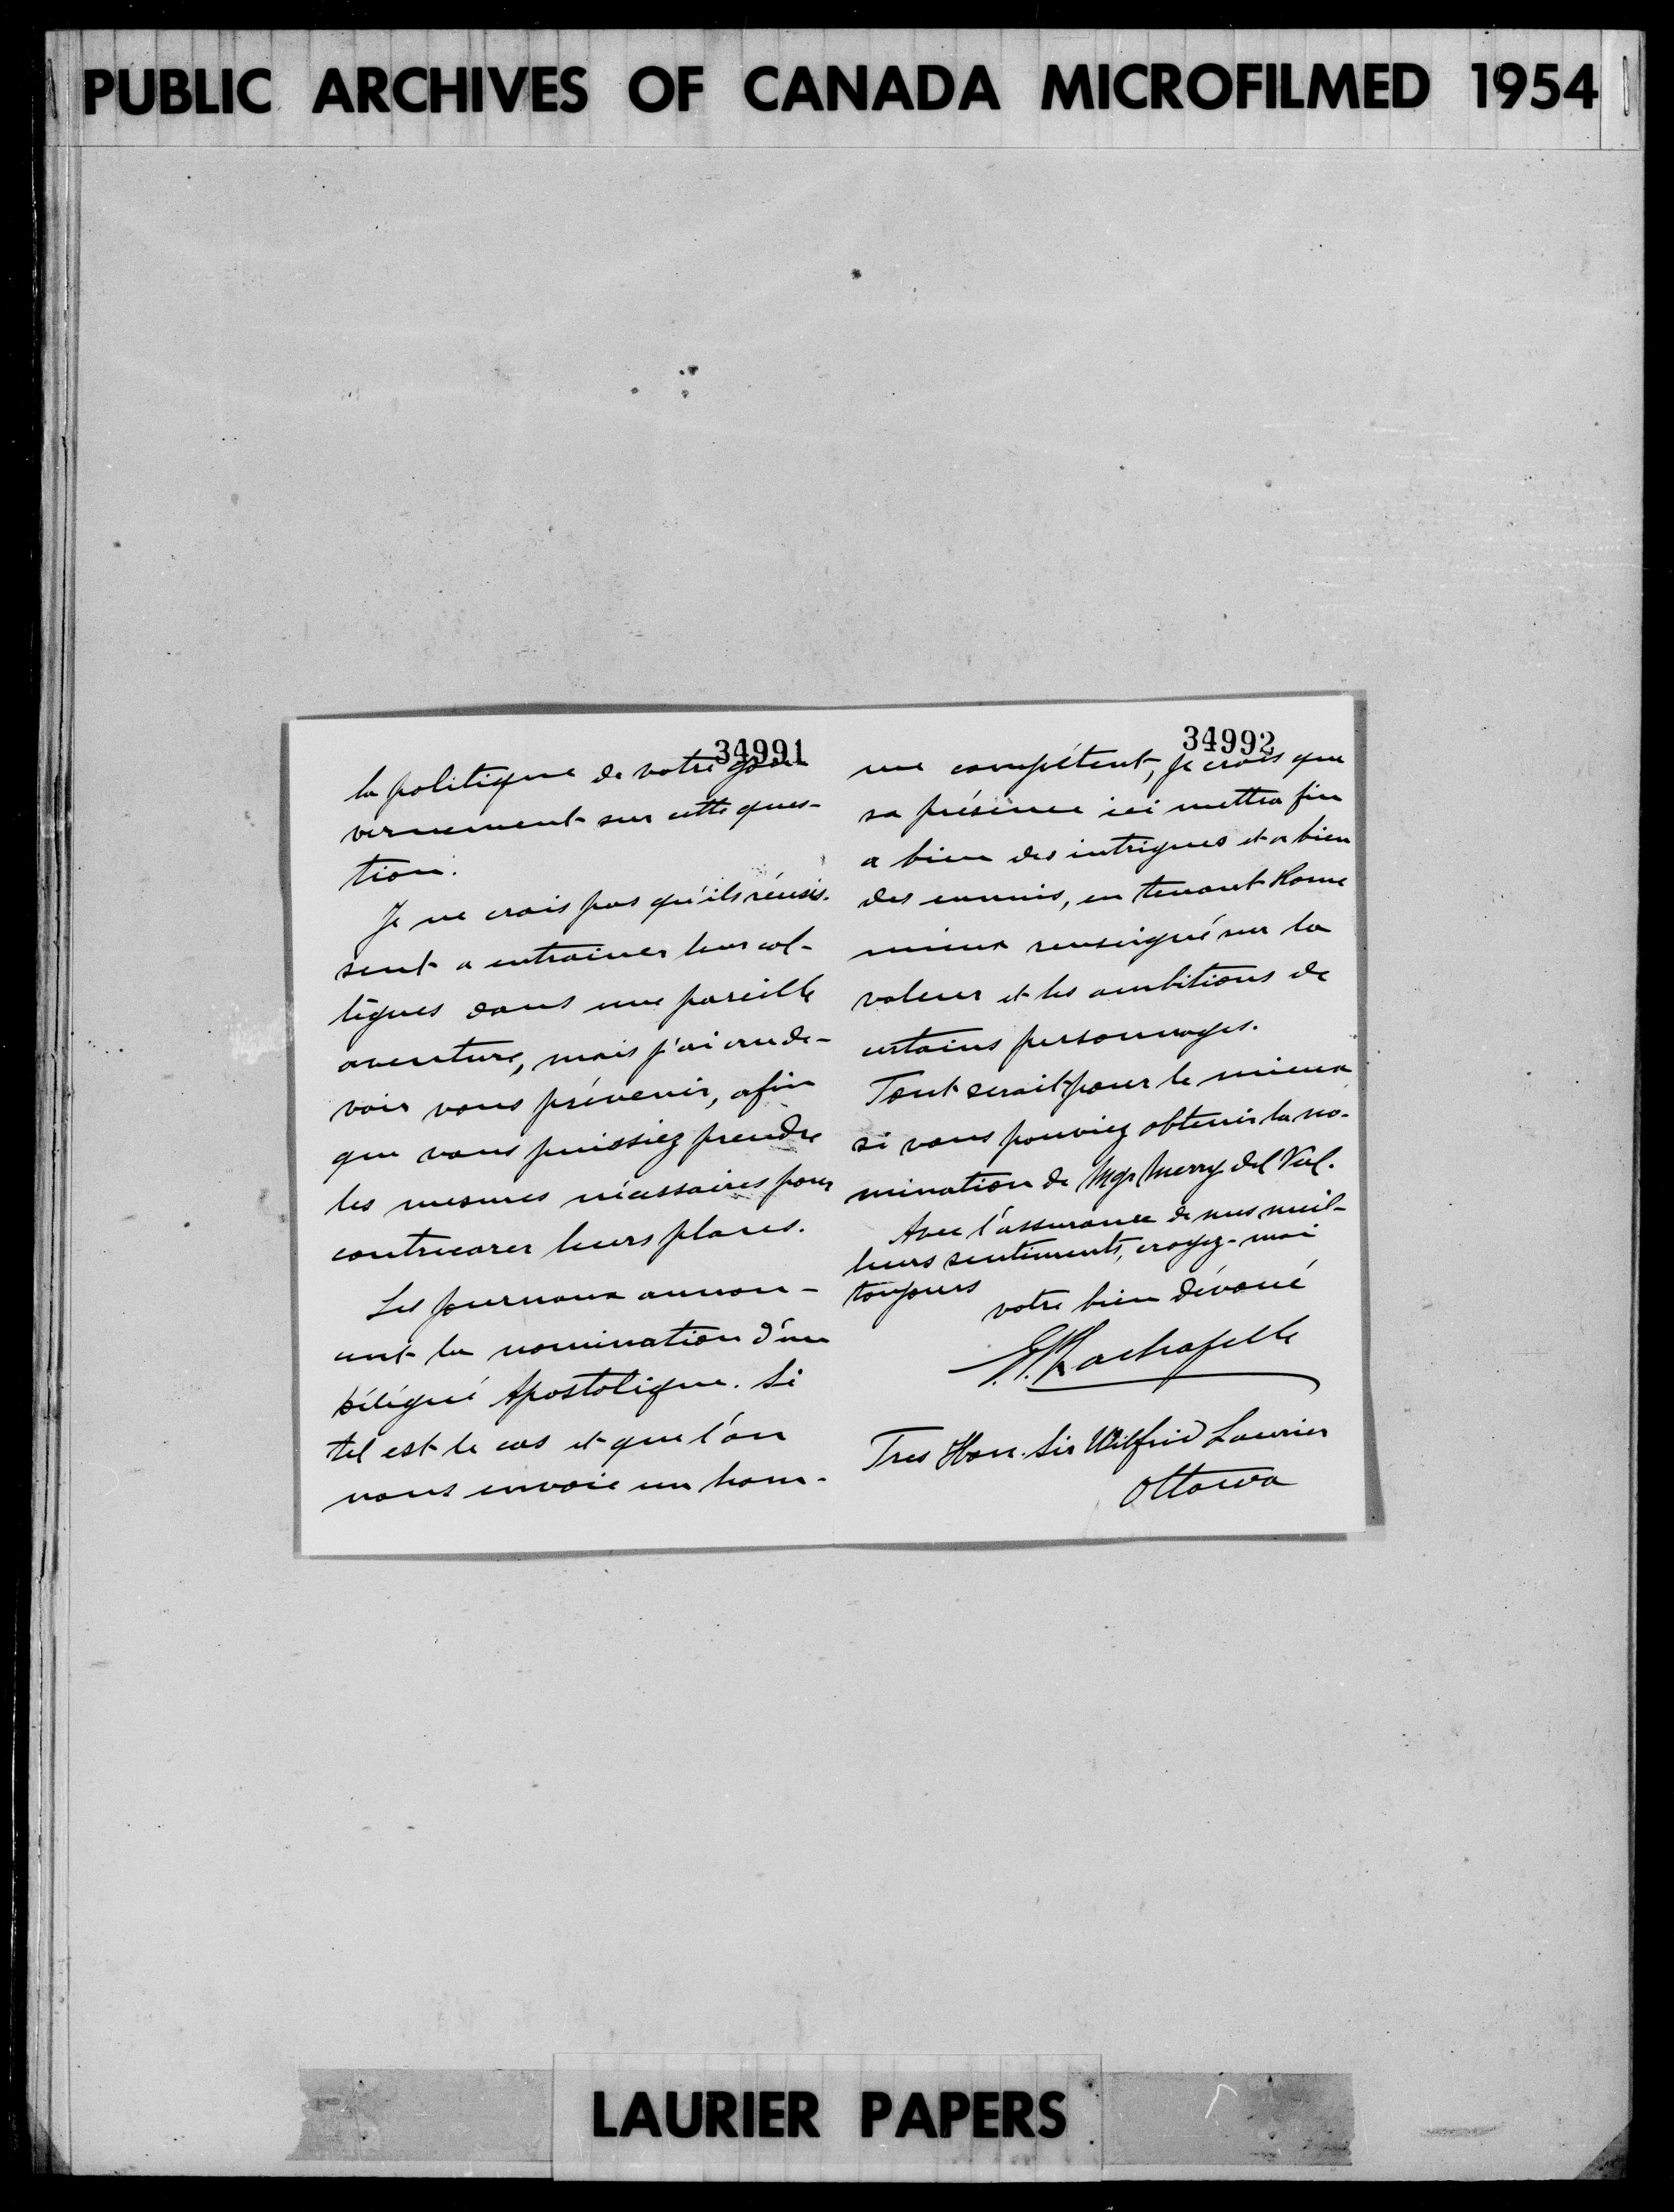 PUBLIC ARCHIVES OF CANADA MICROFILMED 1954
34991
la politique de votre gou
vernement sur cette ques-
tion.
Je ne crois pas qu'ils réussis-
sent a entrainer leurs col-
lègues dans une pareille
aventure, mais j'ai cru de-
voir vous prévenir, afin
que vous puissiez prendre
les mesures nécessaires pour
contrecarer leurs plans.
Les journaux annon-
cent la nomination d'un
Délégué Apostolique. Si
tel est le cas et que l'on
nous envoie un hom-
34992
me compétent, je crois que
sa présence ici mettra fin
a bien des intrigues et a bien
des ennuis, en tenant Rome
mieux renseigné sur la
valeur et les ambitions de
certains personnages.
Tout serait pour le mieux
si vous pouviez obtenir la no-
mination de Mgr Merry del Val.
Avec l'assurance de mes meil-
leurs sentiments, croyez-moi
toujours
votre bien dévoué
Rochefelle
Tres Hon. Sir Wilfrid Laurier
Ottawa
LAURIER PAPERS